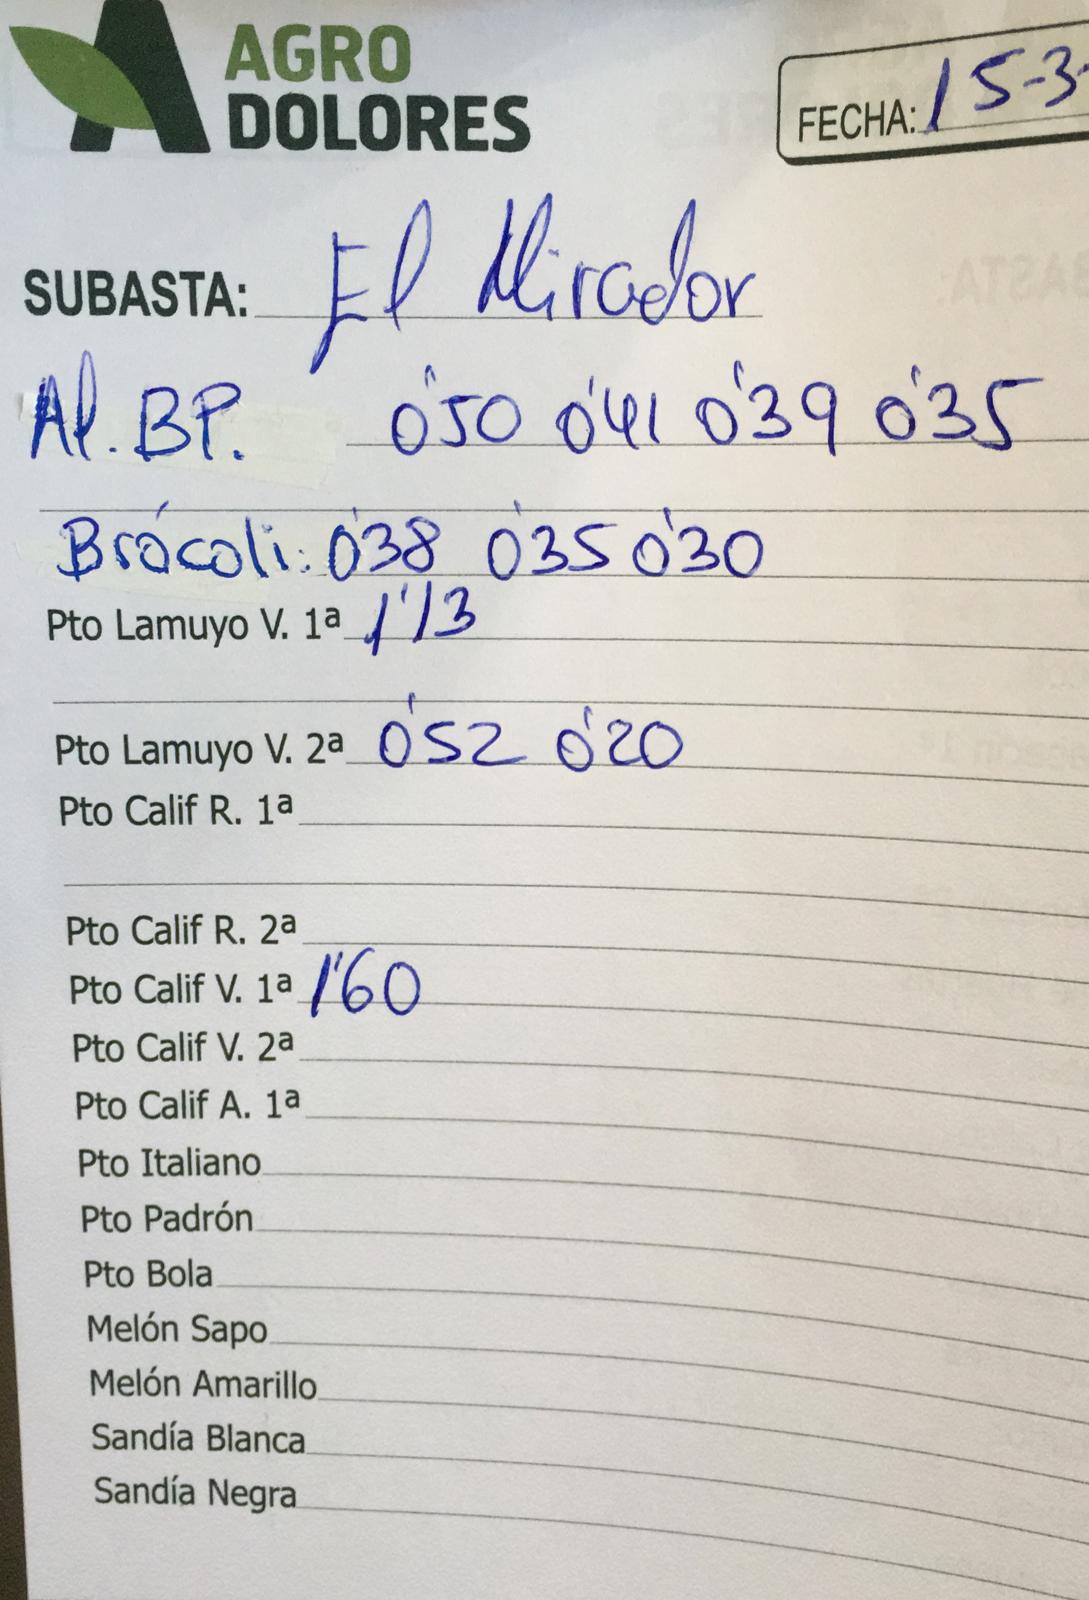 AGRO
DOLORES
FECHA: 15-3-
SUBASTA: El Mirador
Al. BP. 0'50 0'41 0'39 0'35
Brócoli: 0'38 0'35 0'30
Pto Lamuyo V. 1ª 1'13
Pto Lamuyo V. 2ª 0'52 0'20
Pto Calif R. 1ª
Pto Calif R. 2ª
Pto Calif V. 1ª 1'60
Pto Calif V. 2ª
Pto Calif A. 1ª
Pto Italiano
Pto Padrón
Pto Bola
Melón Sapo
Melón Amarillo
Sandía Blanca
Sandía Negra